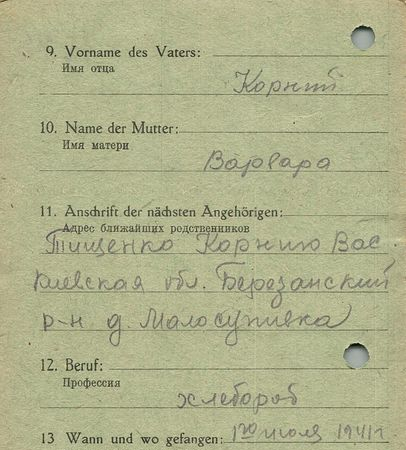 9. Vorname des Vaters:
Имя отца
Корний
10. Name der Mutter:
Имя матери
Варвара
11. Anschrift der nächsten Angehörigen:
Адрес ближайших родственников
Тищенко Корнию Вас
Киевская обл. Березанский
р-н д. Малосупивка
12. Beruf:
Профессия
хлебороб
13 Wann und wo gefangen:
июля 1941 г